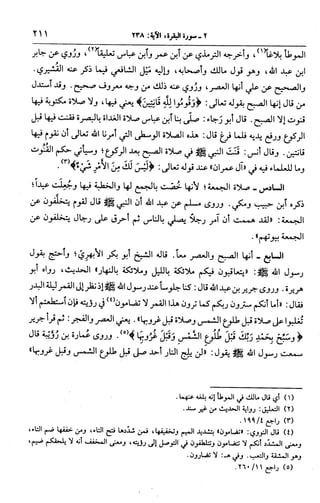 ٢ - سورة البقرة، الآية: ٢٣٨
٢١١
الموطأ بلاغاً(١)، وأخرجه الترمذي عن ابن عمر وابن عباس تعليقاً(٢)، ورُوي عن جابر
ابن عبد الله، وهو قول مالك وأصحابه، وإليه مَيْل الشافعي فيما ذكر عنه القشيري.
والصحيح عن علي أنها العصر، ورُوي عنه ذلك من وجه معروف صحيح. وقد استدل
من قال إنها الصبح بقوله تعالى: ﴿وَقُومُوا لِلَّهِ قَانِتِينَ﴾ يعني فيها، ولا صلاة مكتوبة فيها
قنوت إلا الصبح. قال أبو رجاء: صلّى بنا ابن عباس صلاة الغداة بالبصرة فقنت فيها قبل
الركوع ورفع يديه فلما فرغ قال: هذه الصلاة الوسطى التي أمرنا الله تعالى أن نقوم فيها
قانتين. وقال أنس: قنت النبي ﷺ في صلاة الصبح بعد الركوع؛ وسيأتي حكم القُنوت
وما للعلماء فيه في «آل عمران» عند قوله تعالى: ﴿لَيْسَ لَكَ مِنَ الْأَمْرِ شَيْءٌ﴾(٣).
السادس - صلاة الجمعة؛ لأنها خُصّت بالجمع لها والخطبة فيها وجُعلت عيداً؛
ذكره ابن حبيب ومكي. وروى مسلم عن عبد الله أن النبي ﷺ قال لقوم يتخلّفون عن
الجمعة: «لقد هممت أن آمر رجلاً يصلي بالناس ثم أحرق على رجال يتخلفون عن
الجمعة بيوتهم».
السابع - أنها الصبح والعصر معاً. قاله الشيخ أبو بكر الأبهري؛ واحتج بقول
رسول الله ﷺ: «يتعاقبون فيكم ملائكة بالليل وملائكة بالنهار» الحديث، رواه أبو
هريرة. وروى جرير بن عبد الله قال: كنا جلوساً عند رسول الله ﷺ إذ نظر إلى القمر ليلة البدر
فقال: «أما أنكم سترون ربكم كما ترون هذا القمر لا تضامون(٤) في رؤيته فإن أستطعتم ألا
تُغلبوا على صلاة قبل طلوع الشمس وصلاة قبل غروبها». يعني العصر والفجر: ثم قرأ جرير
﴿وَسَبِّحْ بِحَمْدِ رَبِّكَ قَبْلَ طُلُوعِ الشَّمْسِ وَقَبْلَ غُرُوبِهَا﴾(٥). وروى عُمارة بن رُؤَيْبة قال
سمعت رسول الله ﷺ يقول: «لن يلج النار أحد صلى قبل طلوع الشمس وقبل غروبها»
(١) أي قال مالك في الموطأ إنه بلغه عنهما.
(٢) التعليق: رواية الحديث من غير سند.
(٣) راجع ١٩٩/٤.
(٤) قال النووي: «تضامون» بتشديد الميم وتخفيفها، فمن شدّدها فتح التاء، ومن خففها ضم التاء،
ومعنى المشدّد أنكم لا تتضامون وتتلطفون في التوصل إلى رؤيته، ومعنى المخفف أنه لا يلحقكم ضيم؛
وهو المشقة والتعب. وفي هـ: لا تضارون.
(٥) راجع ٢٦٠/١١.